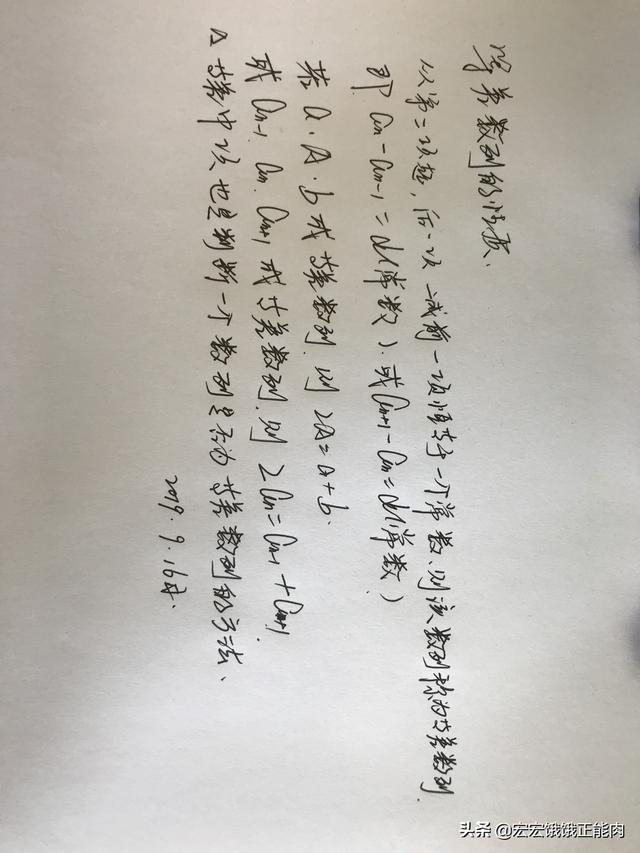 等差数列的性质、
从第二项起，后一项减前一项恒等于一个常数、则该数列称为等差数列
即 an-an-1=d(常数)、或an+1-an=d(常数)
若a.A.b成等差数列.则2A=a+b.
或an-1.an.an+1成等差数列.则2an=an-1+an+1.
△等差中项也是判断一个数列是否为等差数列的方法、
2019.9.16
头条 @宏宏饿饿正能肉